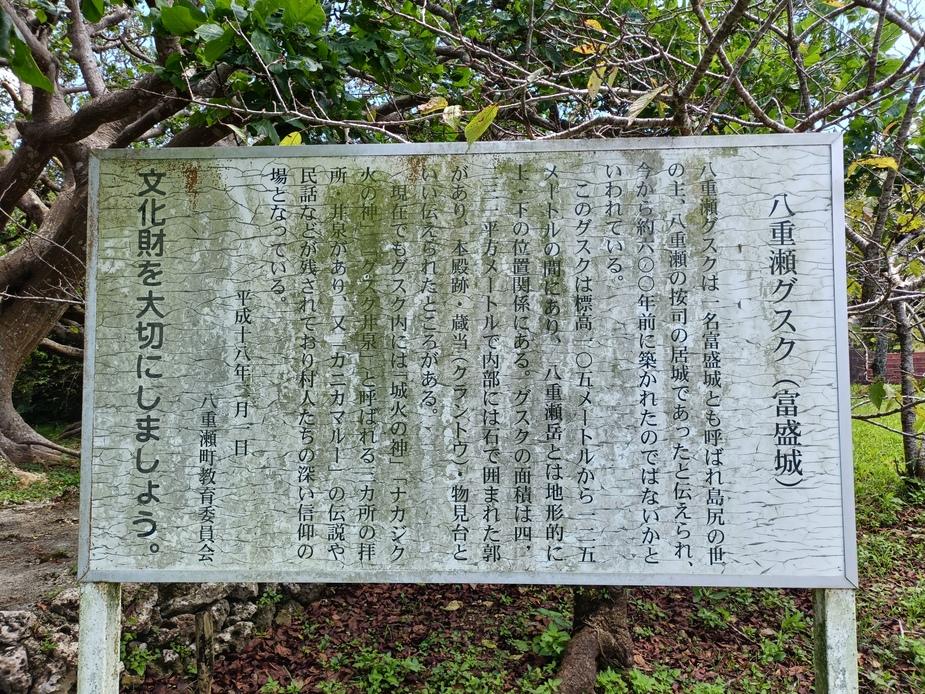 八重瀬グスク（富盛城）
八重瀬グスクは一名富盛城とも呼ばれ島尻の世
の主、八重瀬の按司の居城であったと伝えられ、
今から約六〇〇年前に築かれたのではないかと
いわれている。
このグスクは標高一〇五メートルから一二五
メートルの間にあり、八重瀬岳とは地形的に
上・下の位置関係にある。グスクの面積は四，
平方メートルで内部には石で囲まれた郭
があり、本殿跡・蔵当（クラントウ）・物見台と
いい伝えられたところがある。
現在でもグスク内には「城火の神」「ナカンク
火の神」「グスク井泉」と呼ばれる カ所の拝
所・井泉があり、又「カニカマルー」の伝説や
民話などが残されており村人たちの深い信仰の
場となっている。
平成十八年 月 日
八重瀬町教育委員会
文化財を大切にしましょう。